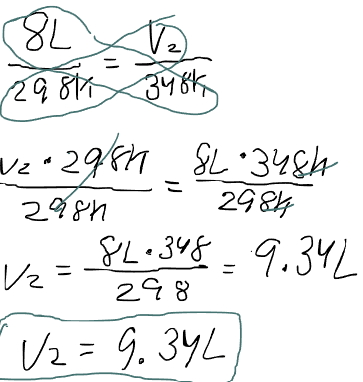 8L/298K = V₂/348K
V₂ · 298K/298K = 8L · 348K/298K
V₂ = 8L · 348/298 = 9.34L
V₂ = 9.34L